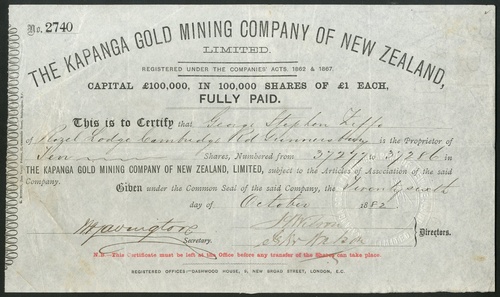 No. 2740
THE KAPANGA GOLD MINING COMPANY OF NEW ZEALAND,
LIMITED.
REGISTERED UNDER THE COMPANIES' ACTS, 1862 & 1867.
CAPITAL £100,000, IN 100,000 SHARES OF £1 EACH,
FULLY PAID.
This is to Certify that George Stephen
of Lodge Cambridge Rd Gunnersbury is the Proprietor of
Ten Shares, Numbered from 37277 to 37286 in
THE KAPANGA GOLD MINING COMPANY OF NEW ZEALAND, LIMITED, subject to the Articles of Association of the said
Company.
Given under the Common Seal of the said Company, the Twenty sixth
day of October 1882
Secretary.
Directors.
N.B.—This Certificate must be left at the Office before any transfer of the Shares can take place.
REGISTERED OFFICES:—DASHWOOD HOUSE, 9, NEW BROAD STREET, LONDON, E.C.